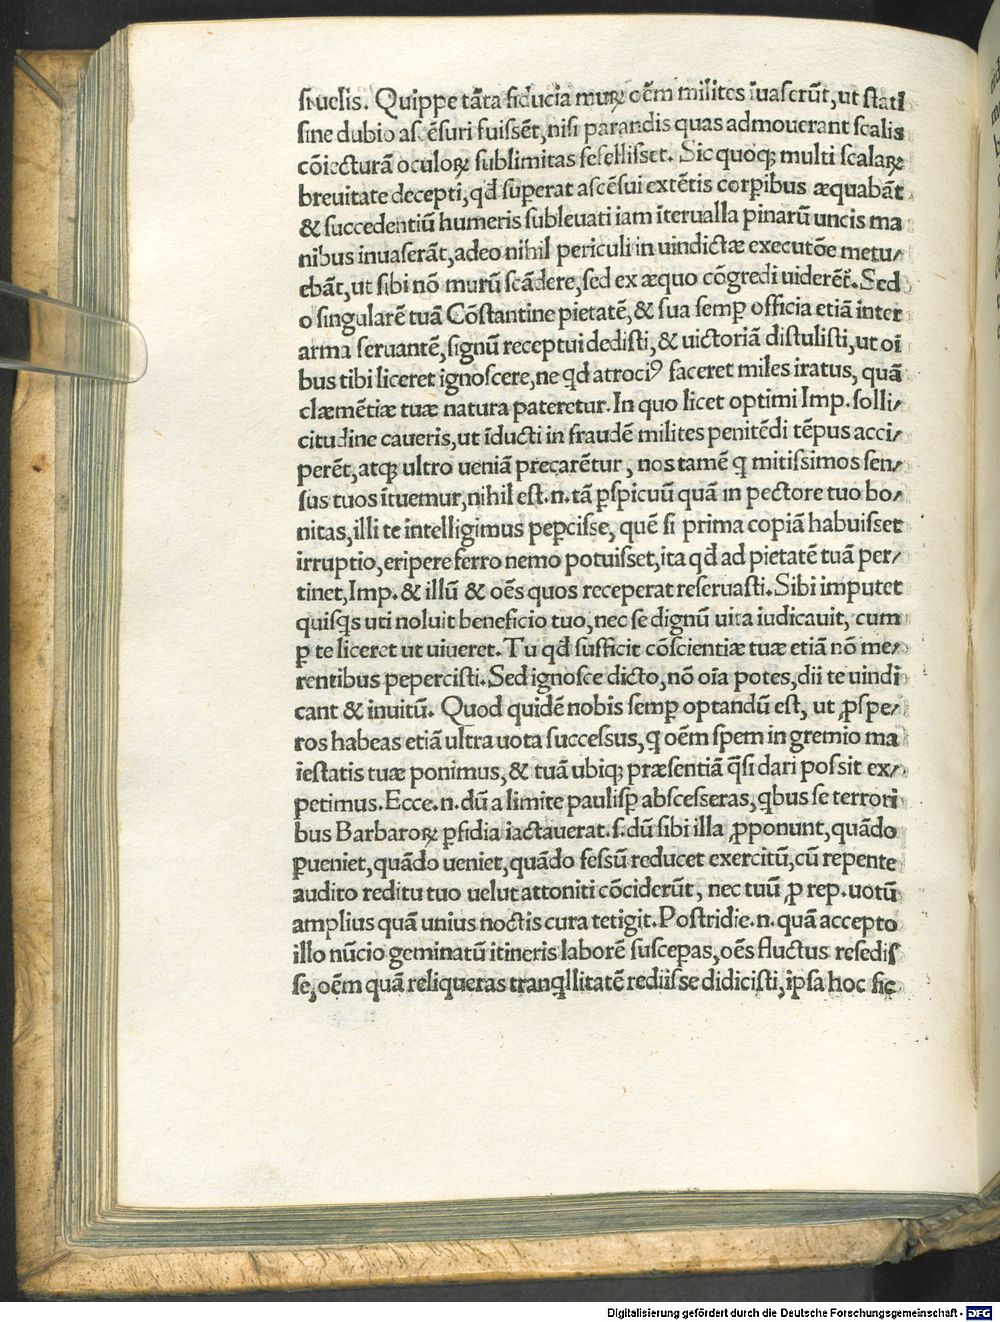 si uelis. Quippe tãta fiducia murꝝ oẽm milites ĩuaserũt, ut statĩ
sine dubio ascẽsuri fuissẽt, nisi parandis quas admouerant scalis
cõiecturã oculoꝝ sublimitas fefellisset. Sic quoqꝫ multi scalaꝝ
breuitate decepti, qđ suꝑerat ascẽsui extẽtis corꝑibus æquabãt
& succedentiũ humeris subleuati iam ĩterualla pinarũ uncis ma
nibus inuaserãt, adeo nihil periculi in uindictæ executõe metu⸗
ebãt, ut sibi nõ murũ scãdere, sed ex æquo cõgredi uiderẽt̃. Sed
o singularẽ tuã Cõstantine pietatẽ, & sua semꝑ officia etiã inter
arma seruantẽ, signũ receptui dedisti, & uictoriã distulisti, ut oĩ
bus tibi liceret ignoscere, ne qđ atrociꝰ faceret miles iratus, quã
clæmẽtiæ tuæ natura pateretur. In quo licet optimi Imp. solli⸗
citudine caueris, ut ĩducti in fraudẽ milites penitẽdi tẽpus acci⸗
perẽt, atqꝫ ultro ueniã precarẽtur, nos tamẽ q mitissimos sen⸗
sus tuos ĩtuemur, nihil est .n. tã ꝑspicuũ quã in pectore tuo bo⸗
nitas, illi te intelligimus peꝑcisse, quẽ si prima copiã habuisset
irruptio, eripere ferro nemo potuisset, ita qđ ad pietatẽ tuã per⸗
tinet, Imp. & illũ & oẽs quos receperat reseruasti. Sibi imputet
quisqs uti noluit beneficio tuo, nec se dignũ uita iudicauit, cum
ꝑ te liceret ut uiueret. Tu qđ sufficit cõscientiæ tuæ etiã nõ me⸗
rentibus pepercisti. Sed ignosce dicto, nõ oĩa potes, dii te uindi
cant & inuitũ. Quod quidẽ nobis semꝑ optandũ est, ut ꝓspe⸗
ros habeas etiã ultra uota successus, q oẽm spem in gremio ma
iestatis tuæ ponimus, & tuã ubiqꝫ præsentiã q̃si dari possit ex⸗
petimus. Ecce .n. dũ a limite paulisꝑ abscesseras, qbus se terrori
bus Barbaroꝝ ꝑfidia iactauerat .s. dũ sibi illa ꝓponunt, quãdo
ꝑueniet, quãdo ueniet, quãdo fessũ reducet exercitũ, cũ repente
audito reditu tuo uelut attoniti cõciderũt, nec tuũ ꝓ rep. uotũ
amplius quã unius noctis cura tetigit. Postridie .n. quã accepto
illo nũcio geminatũ itineris laborẽ susceꝑas, oẽs fluctus resedis
se, oẽm quã reliqueras tranqllitatẽ rediisse didicisti, ipsa hoc sic
Digitalisierung gefördert durch die Deutsche Forschungsgemeinschaft - DFG